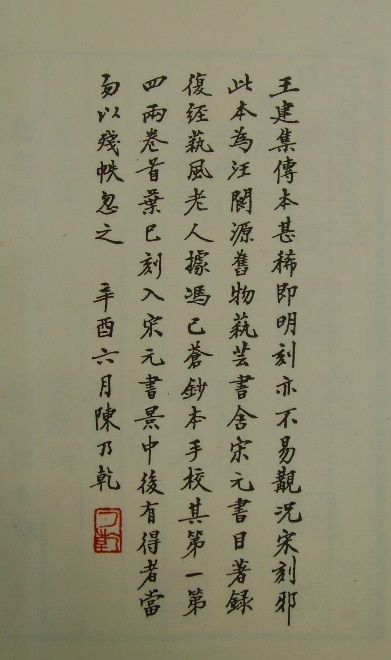 王建集傳本甚稀即明刻亦不易覯況宋刻邪
此本為汪閬源舊物藝芸書舍宋元書目著錄
復經蓺風老人據馮已蒼鈔本手校其第一第
四兩卷首葉已刻入宋元書景中後有得者當
勿以殘帙忽之 辛酉六月陳乃乾
乃乾